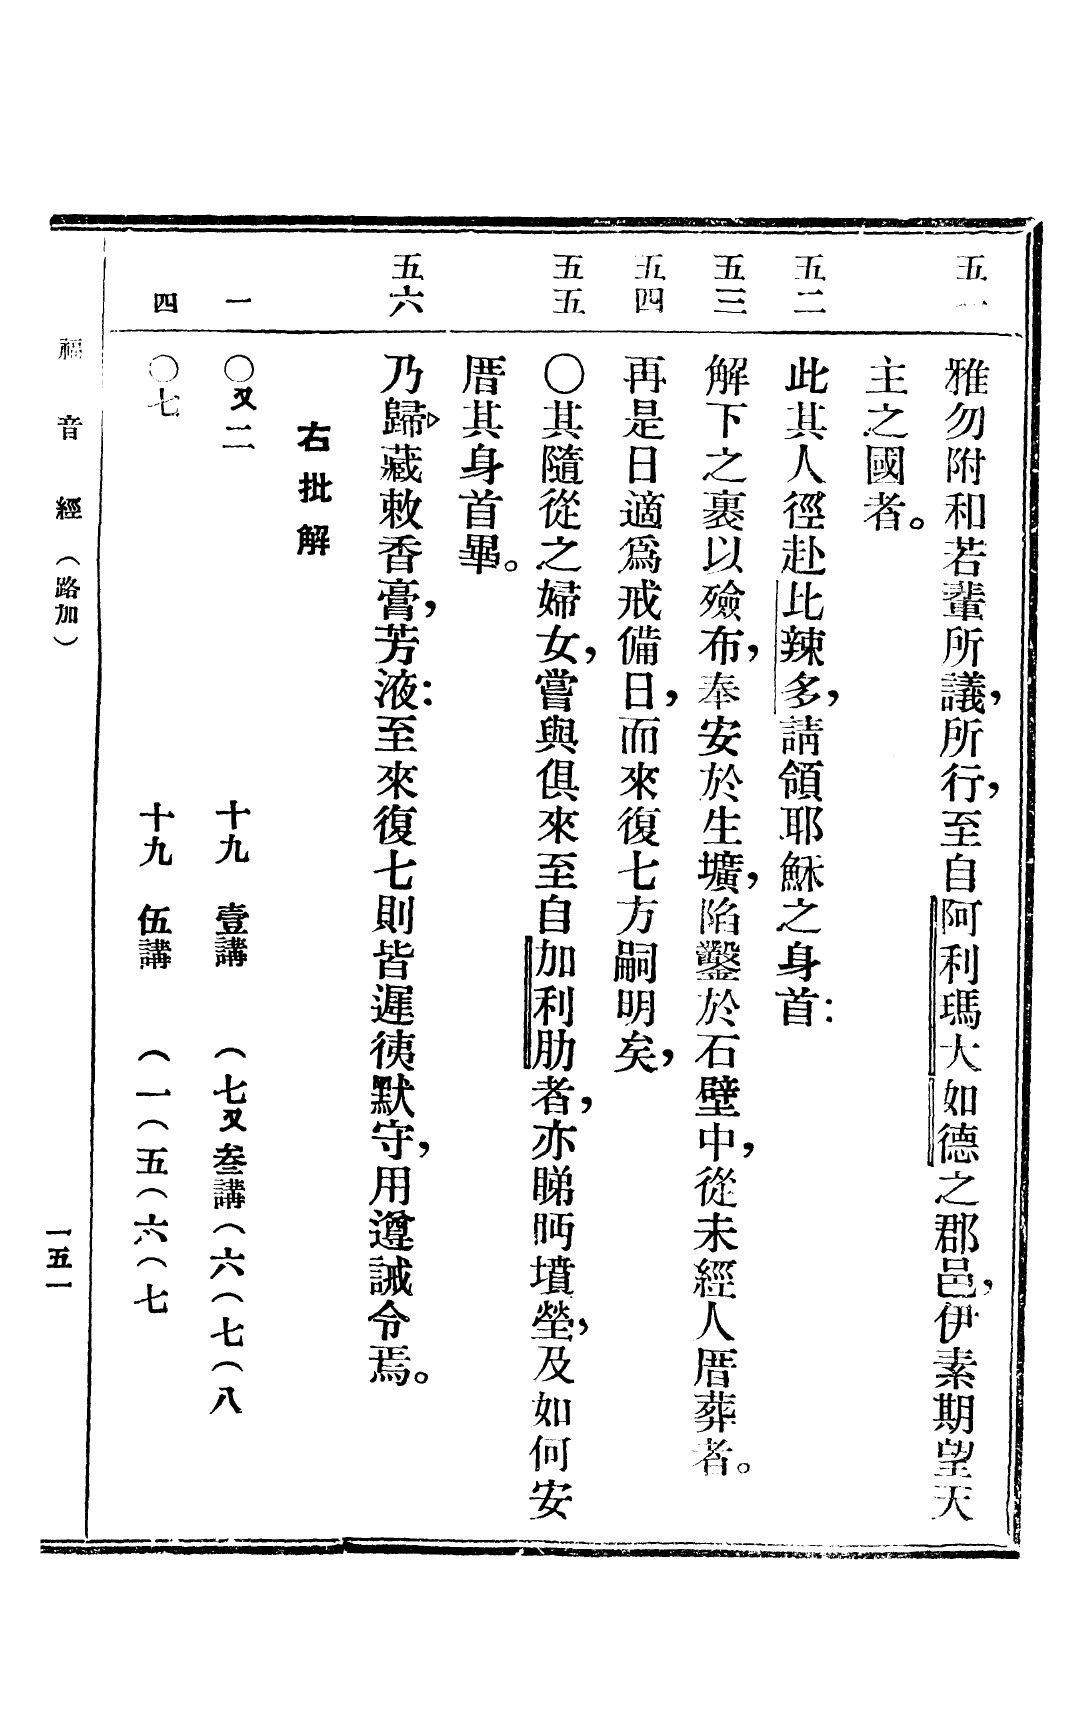 五一 雅勿附和若輩所議，所行，至自阿利瑪大如德之郡邑，伊素期望天
主之國者。
五二 此其人徑赴比辣多，請領耶穌之身首：
五三 解下之裹以殮布，奉安於生壙，陷鑿於石壁中，從未經人厝葬者。
五四 再是日適爲戒備日，而來復七方嗣明矣，
五五 〇其隨從之婦女，嘗與俱來至自加利肋者，亦睇眄墳塋，及如何安
厝其身首畢。
五六 乃歸▷藏敕香膏，芳液：至來復七則皆遲徛默守，用遵誡令焉。
右批解
一 〇又二 十九 壹講 （七又叁講（六（七（八
四 〇七 十九 伍講 （一（五（六（七
福音經（路加） 一五一